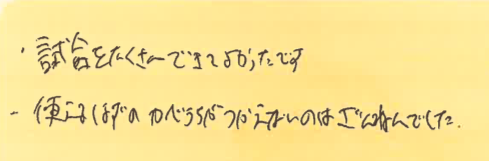 ・試合をたくさんできてよかったです
- 使えるはずのかべうちがつかえないのはざんねんでした.